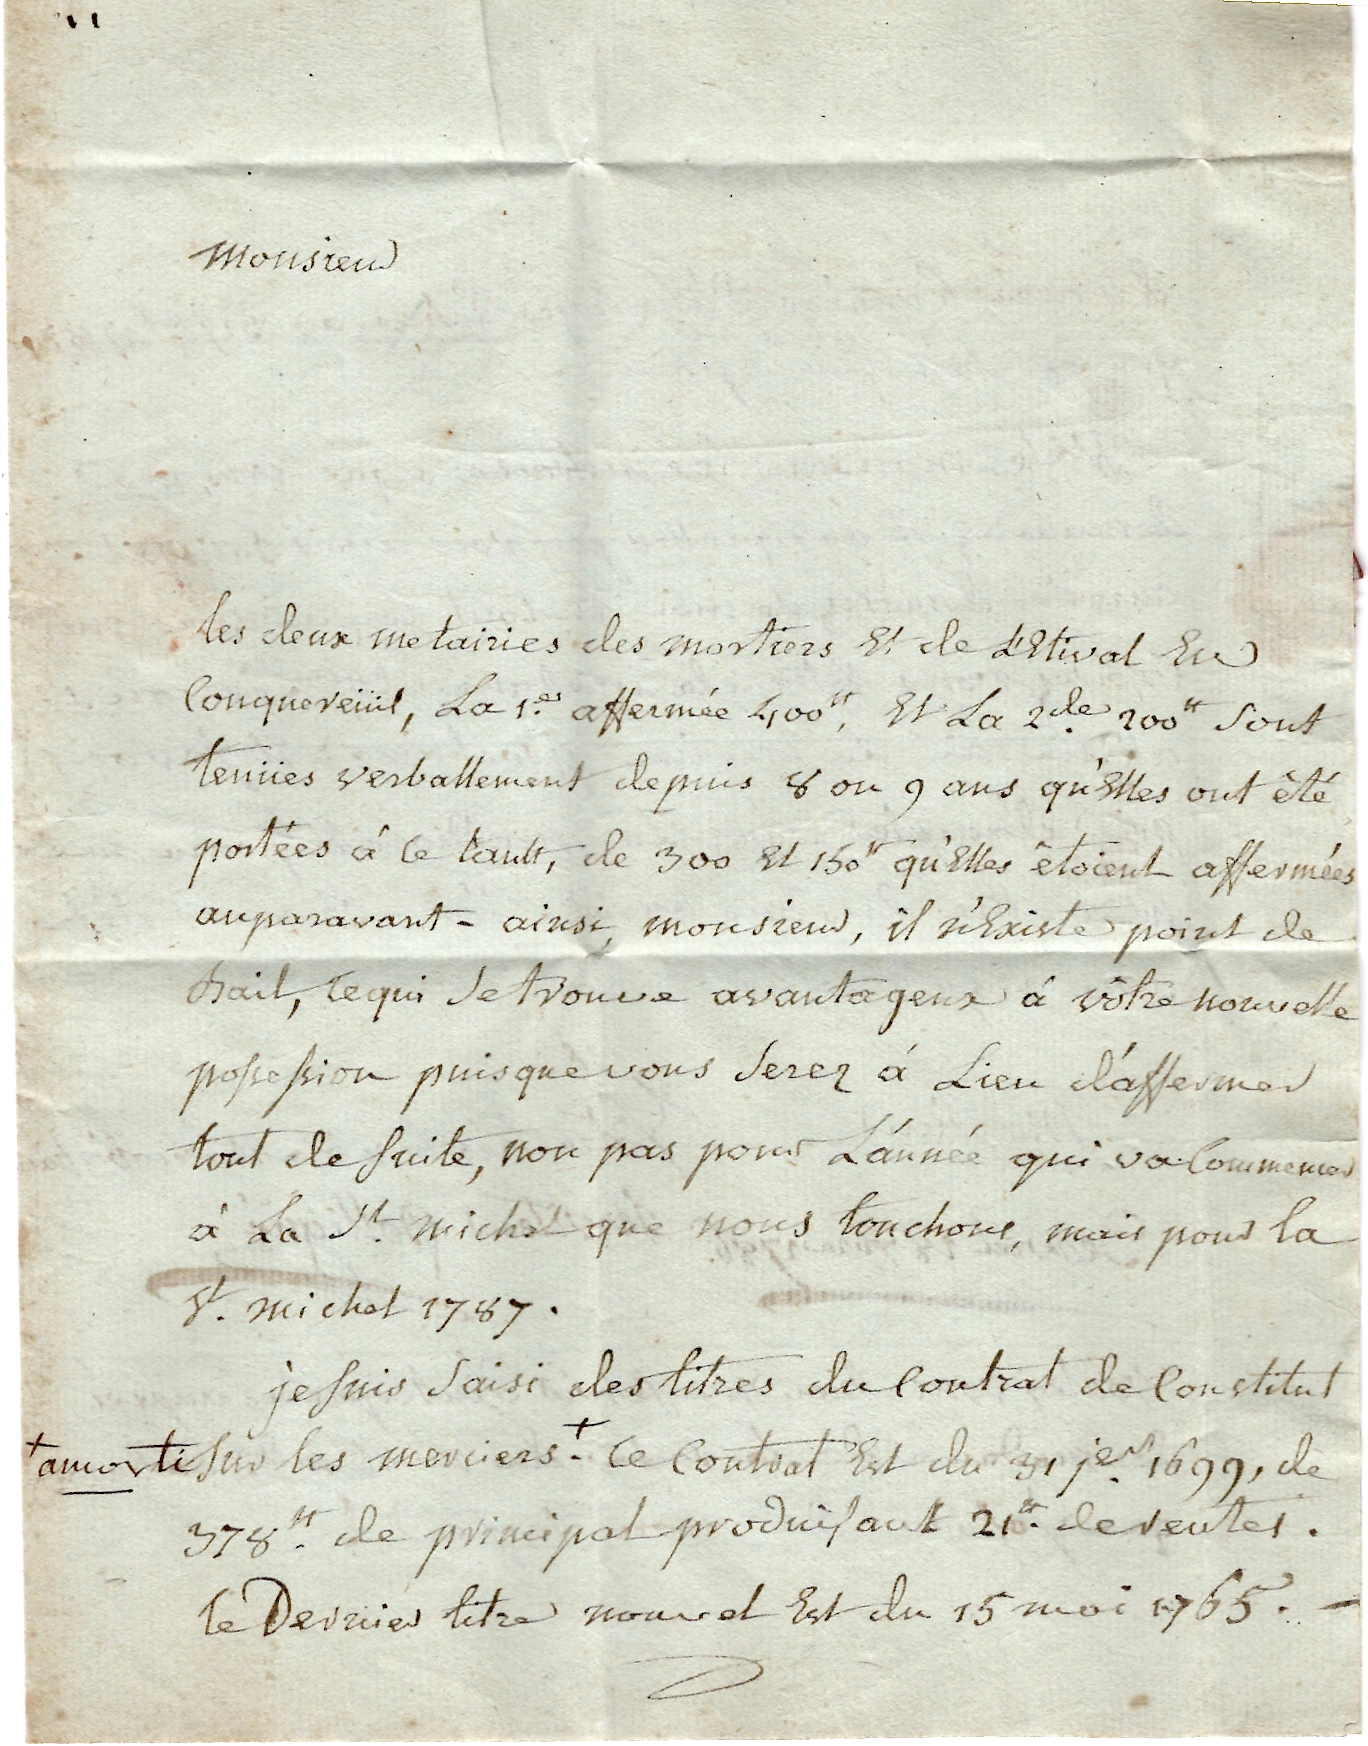 Monsieur
les deux metairies des mortiers Et de L'Etival En
Conquereüil, La 1.ere affermée 400tt, Et La 2.de 200tt sont
tenües verballement depuis 8 ou 9 ans qu'Elles ont êté
portées á ce taux, de 300 Et 150tt qu'Elles êtoient affermées
auparavant - ainsi, monsieur, il n'Existe point de
bail, ce qui se trouve avantageux á vôtre nouvelle
possession puisque vous serez á Lieu d'affermer
tout de suite, non pas pour L'année qui va Commencer
á La St. michel que nous touchons, mais pour la
St. michel 1787.
je suis saisi des titres du Contrat de Constitut
+ amorti sur les merciers + . Ce Contrat Est du 31 jer. 1699, de
378tt. de principal produisant 21tt. de rentes.
le Dernier titre nouvel Est du 15 mai 1765. -